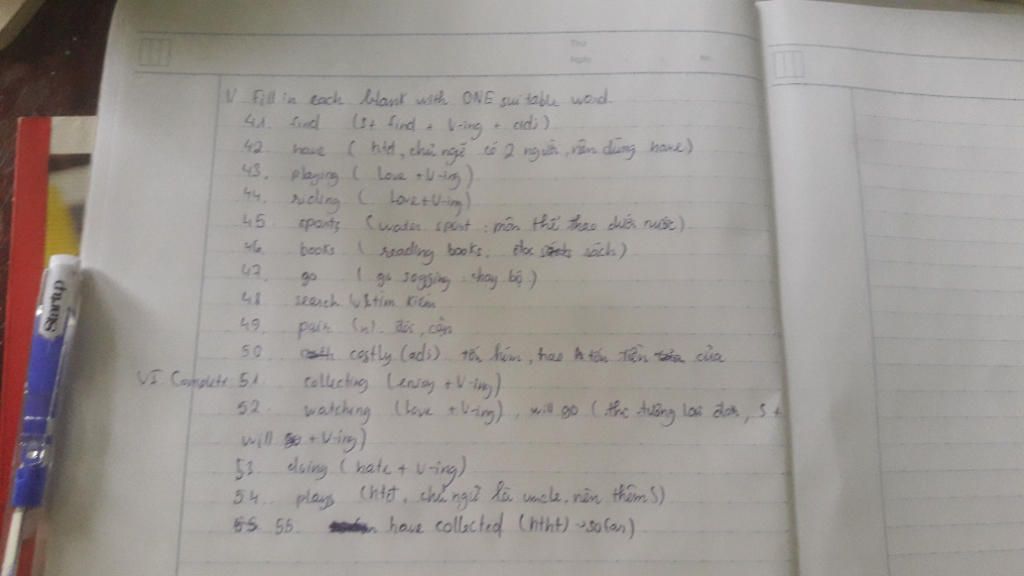 Thứ
Ngày No.
V Fill in each blank with ONE suitable word.
41. find (S + find + V-ing + adj)
42 have ( htđ, chủ ngữ có 2 người, nên dùng have)
43. playing ( Love + V-ing)
44. riding ( Love + V-ing)
45. sports (water sport : môn thể thao dưới nước)
46. books ( reading books. đọc sách)
47. go ( go jogging : chạy bộ)
48 search tìm kiếm
49. pair (n). đôi, cặp
50 costly (adj). tốn kém, tốn tiền của
VI. Complete 51 collecting (enjoy + V-ing)
52. watching (Love + V-ing), will go ( thc tương lai đơn, S +
will + V-ing)
53. doing ( hate + V-ing)
54. plays (htđ, chủ ngữ là uncle, nên thêm S)
55. have collected (htht) → so far)
Starup